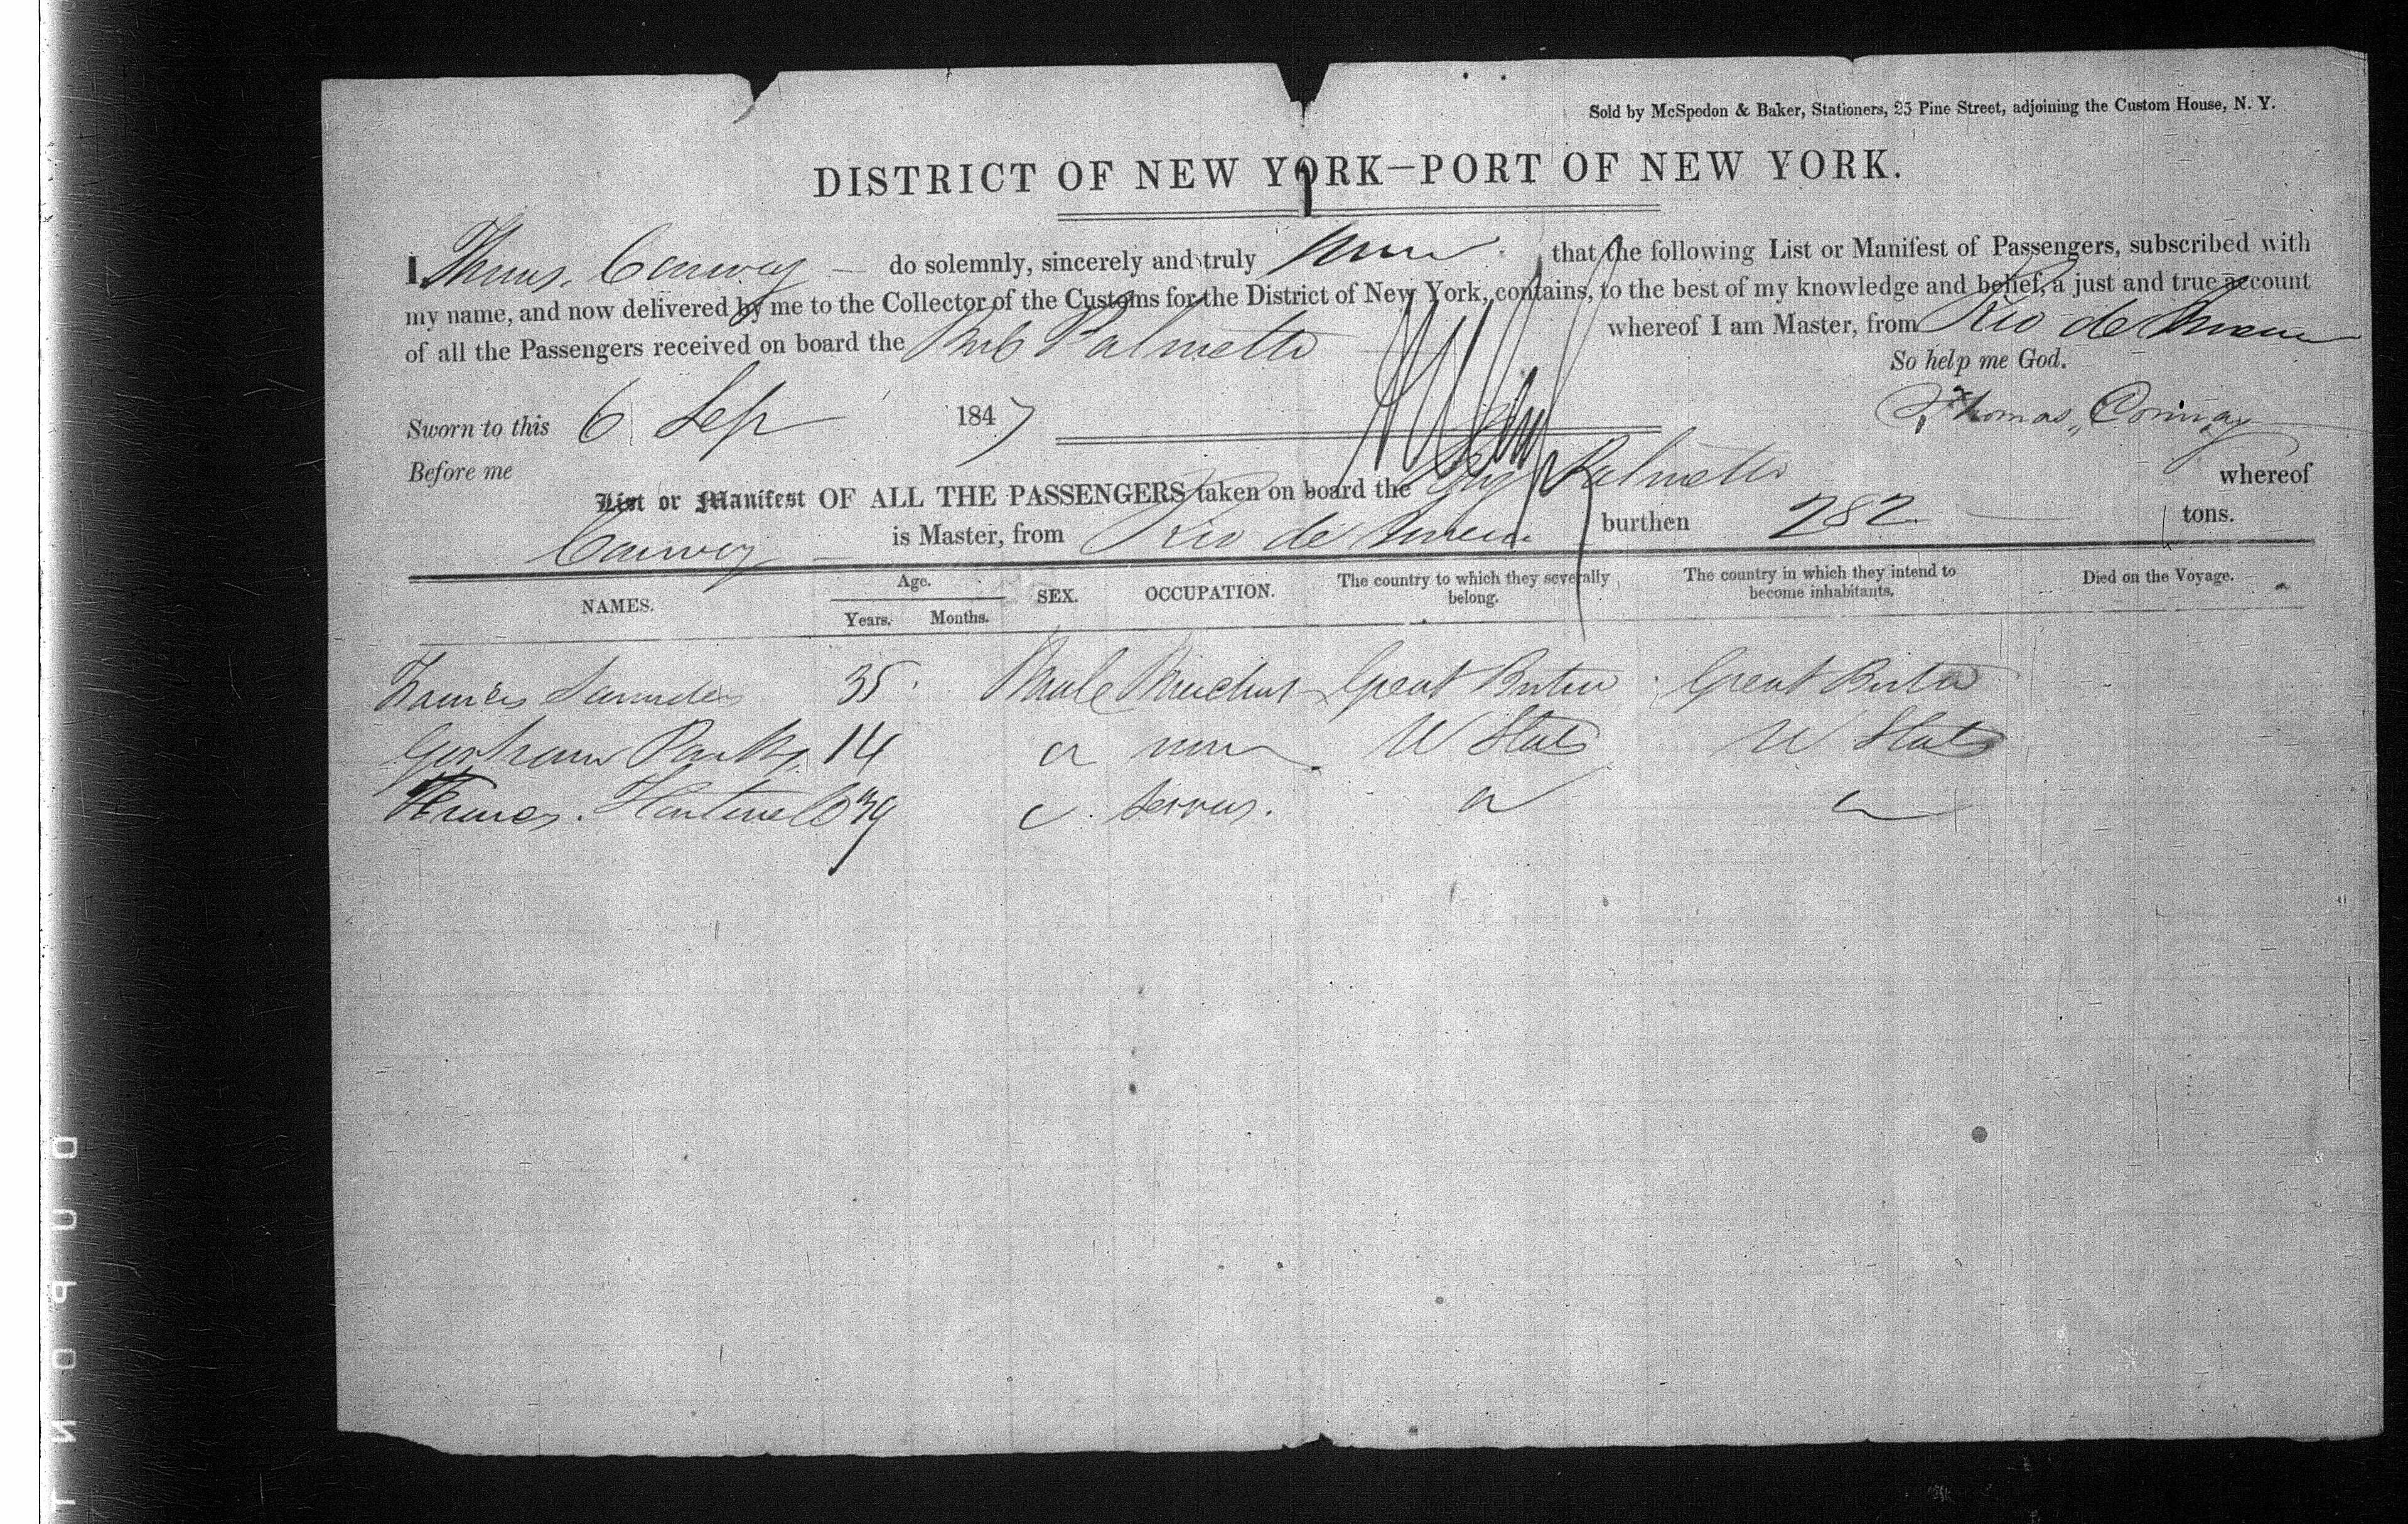 Sold by McSpedon & Baker, Stationers, 25 Pine Street, adjoining the Custom House, N. Y.
DISTRICT OF NEW YORK—PORT OF NEW YORK.
I, Thomas Conway do solemnly, sincerely and truly that the following List or Manifest of Passengers, subscribed with
my name, and now delivered by me to the Collector of the Customs for the District of New York, contains, to the best of my knowledge and belief, a just and true account
of all the Passengers received on board the Palmetto whereof I am Master, from Rio de
So help me God.
Sworn to this 6 Sep 1847
Thomas Conway
Before me
List or Manifest OF ALL THE PASSENGERS taken on board the Palmetto whereof
Conway is Master, from Rio de burthen 282 tons.
NAMES. Age. Years. Months. SEX. OCCUPATION. The country to which they severally belong. The country in which they intend to become inhabitants. Died on the Voyage.
Francis Saunders 35 Male Great Britain Great Britain
Gorham Parks 14 U States U States
39
TNOPUD